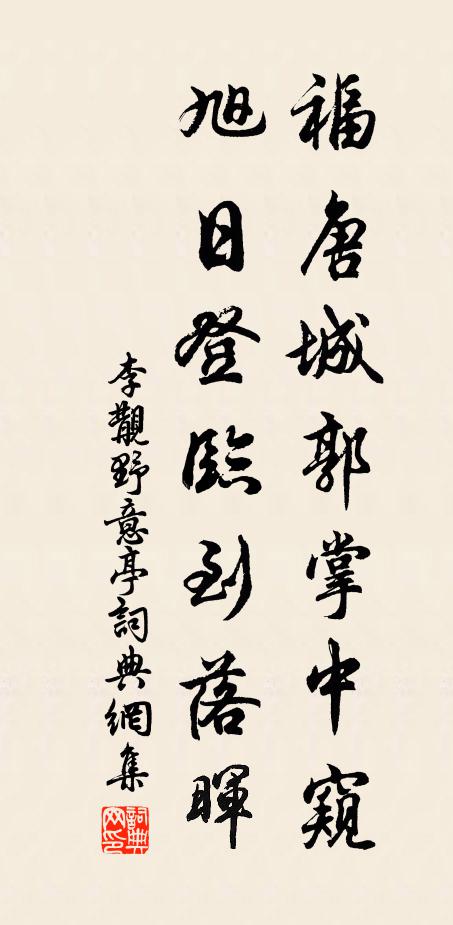 福唐城郭掌中窺
旭日登臨到落暉
李觀野意亭詞典網集
詞典
网印